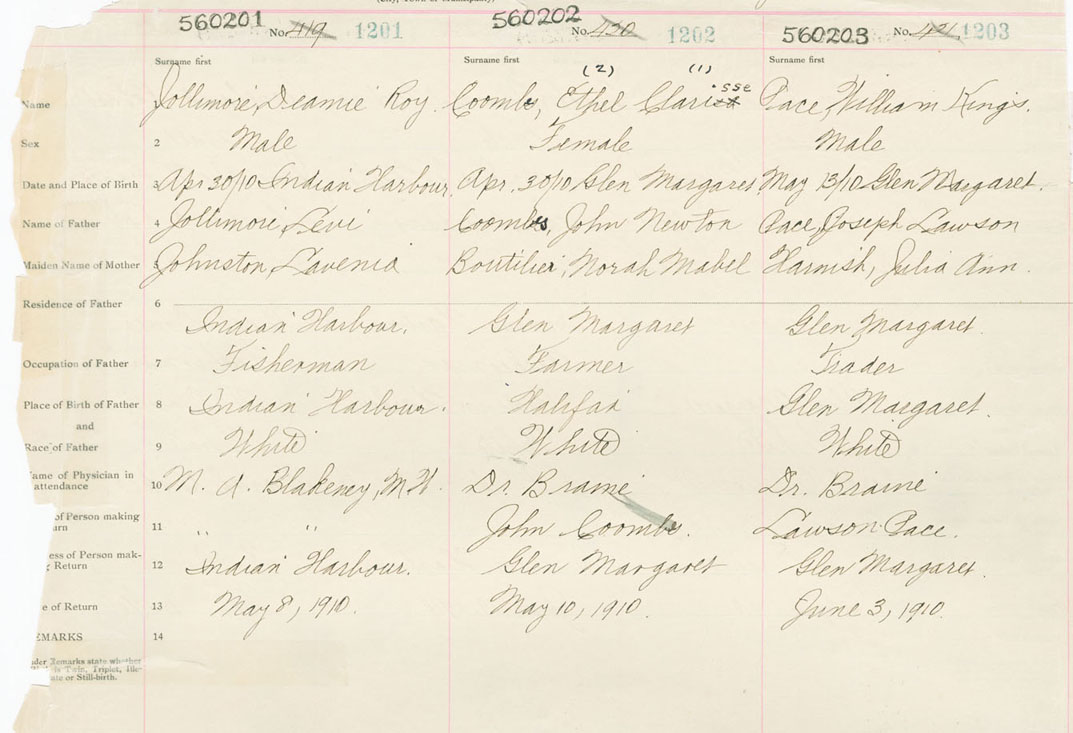 560201 560202 560203
No. 419 1201 No. 420 1202 No. 421 1203
Surname first Surname first Surname first
(2) (1)
Name 1 Jollimore, Deamie Roy. Coombs, Ethel Clarisse Pace, William Kings.
Sex 2 Male Female Male
Date and Place of Birth 3 Apr 30/10 Indian Harbour Apr. 30/10 Glen Margaret May 13/10 Glen Margaret.
Name of Father 4 Jollimore, Levi Coombs, John Newton Pace, Joseph Lawson
Maiden Name of Mother 5 Johnston, Lavenia Boutilier, Norah Mabel Harnish, Julia Ann.
Residence of Father 6
Indian Harbour. Glen Margaret Glen Margaret.
Occupation of Father 7 Fisherman Farmer Trader
Place of Birth of Father 8 Indian Harbour. Halifax Glen Margaret.
and
Race of Father 9 White White White
ame of Physician in
attendance 10 M. A. Blakeney, M.D. Dr. Braine Dr. Braine
of Person making
urn 11 " " John Coombs. Lawson Pace.
ess of Person mak-
g Return 12 Indian Harbour. Glen Margaret Glen Margaret.
e of Return 13 May 8, 1910. May 10, 1910. June 3, 1910.
EMARKS 14
der Remarks state whether
is Twin, Triplet, Ille-
ate or Still-birth.